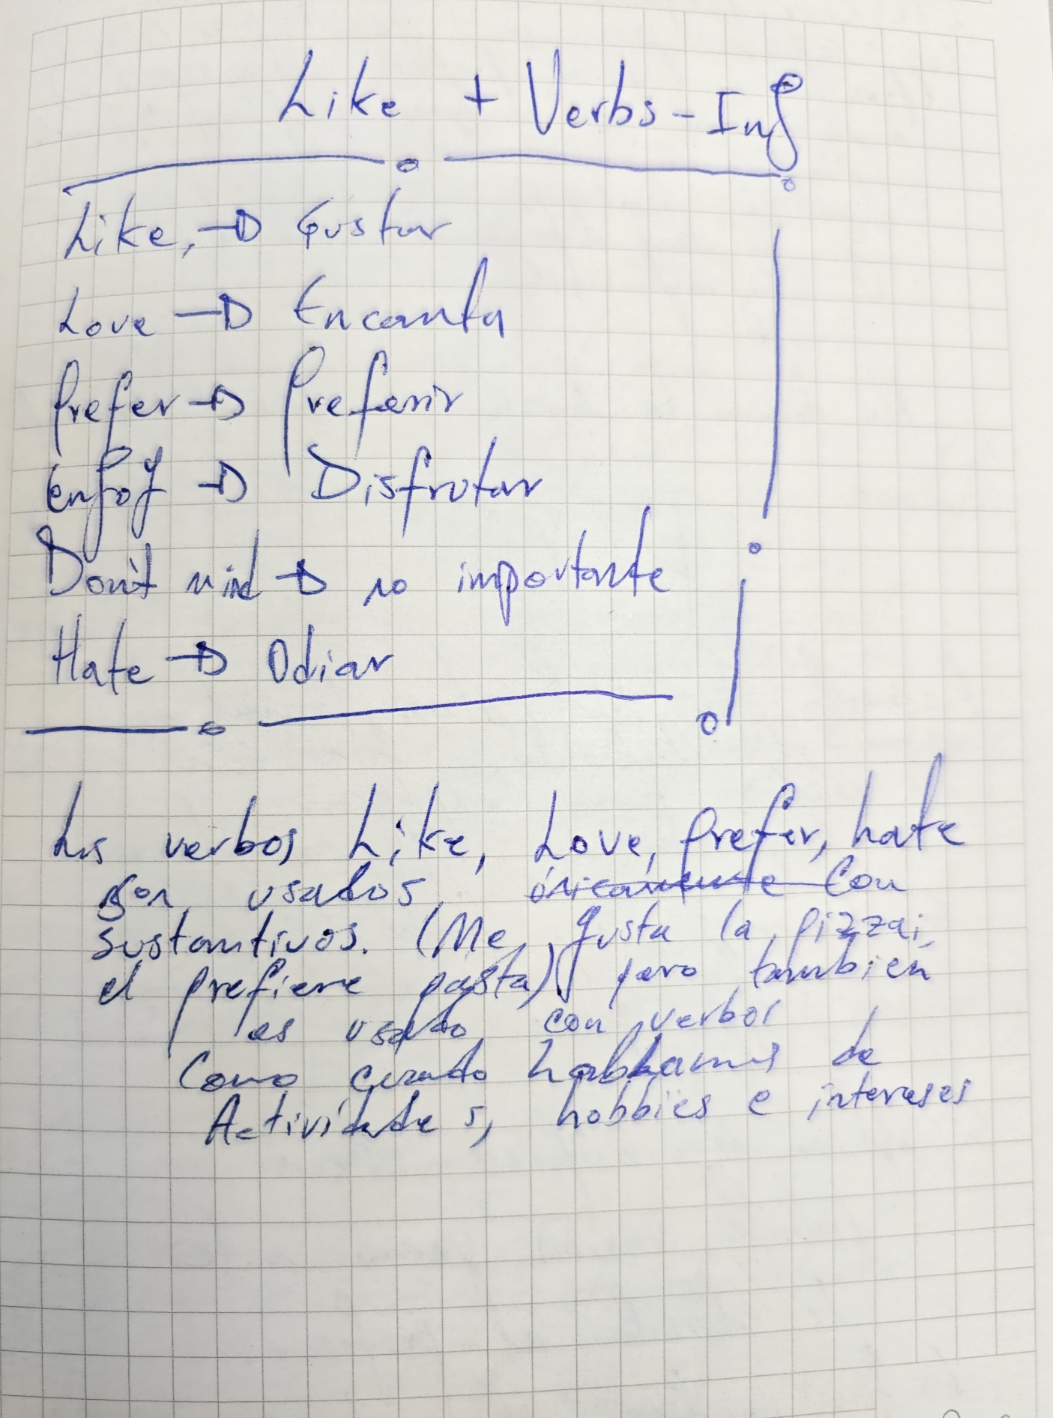 Like + Verbs-Ing
Like, → Gustar
Love → Encanta
Prefer → Preferir
enjoy → Disfrutar
Don't mind → no importante
Hate → Odiar
Los verbos Like, Love, prefer, hate
son usados únicamente con
sustantivos. (Me gusta la pizza,
el prefiere pasta) pero tambien
es usado con verbos
Como cuando hablamos de
Actividades, hobbies e intereses